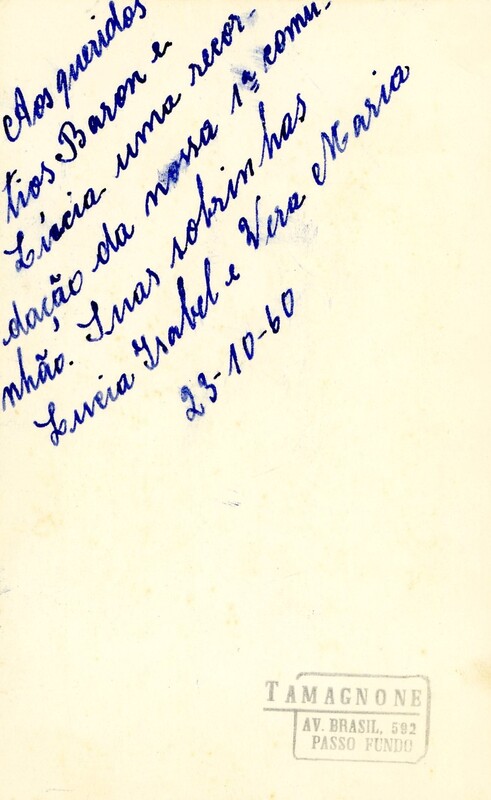 Aos queridos
tios Baron e
Lúcia uma recor-
dação da nossa 1ª comu-
nhão. Suas sobrinhas
Lucia Isabel e Vera Maria
23-10-60
TAMAGNONE
AV. BRASIL, 592
PASSO FUNDO